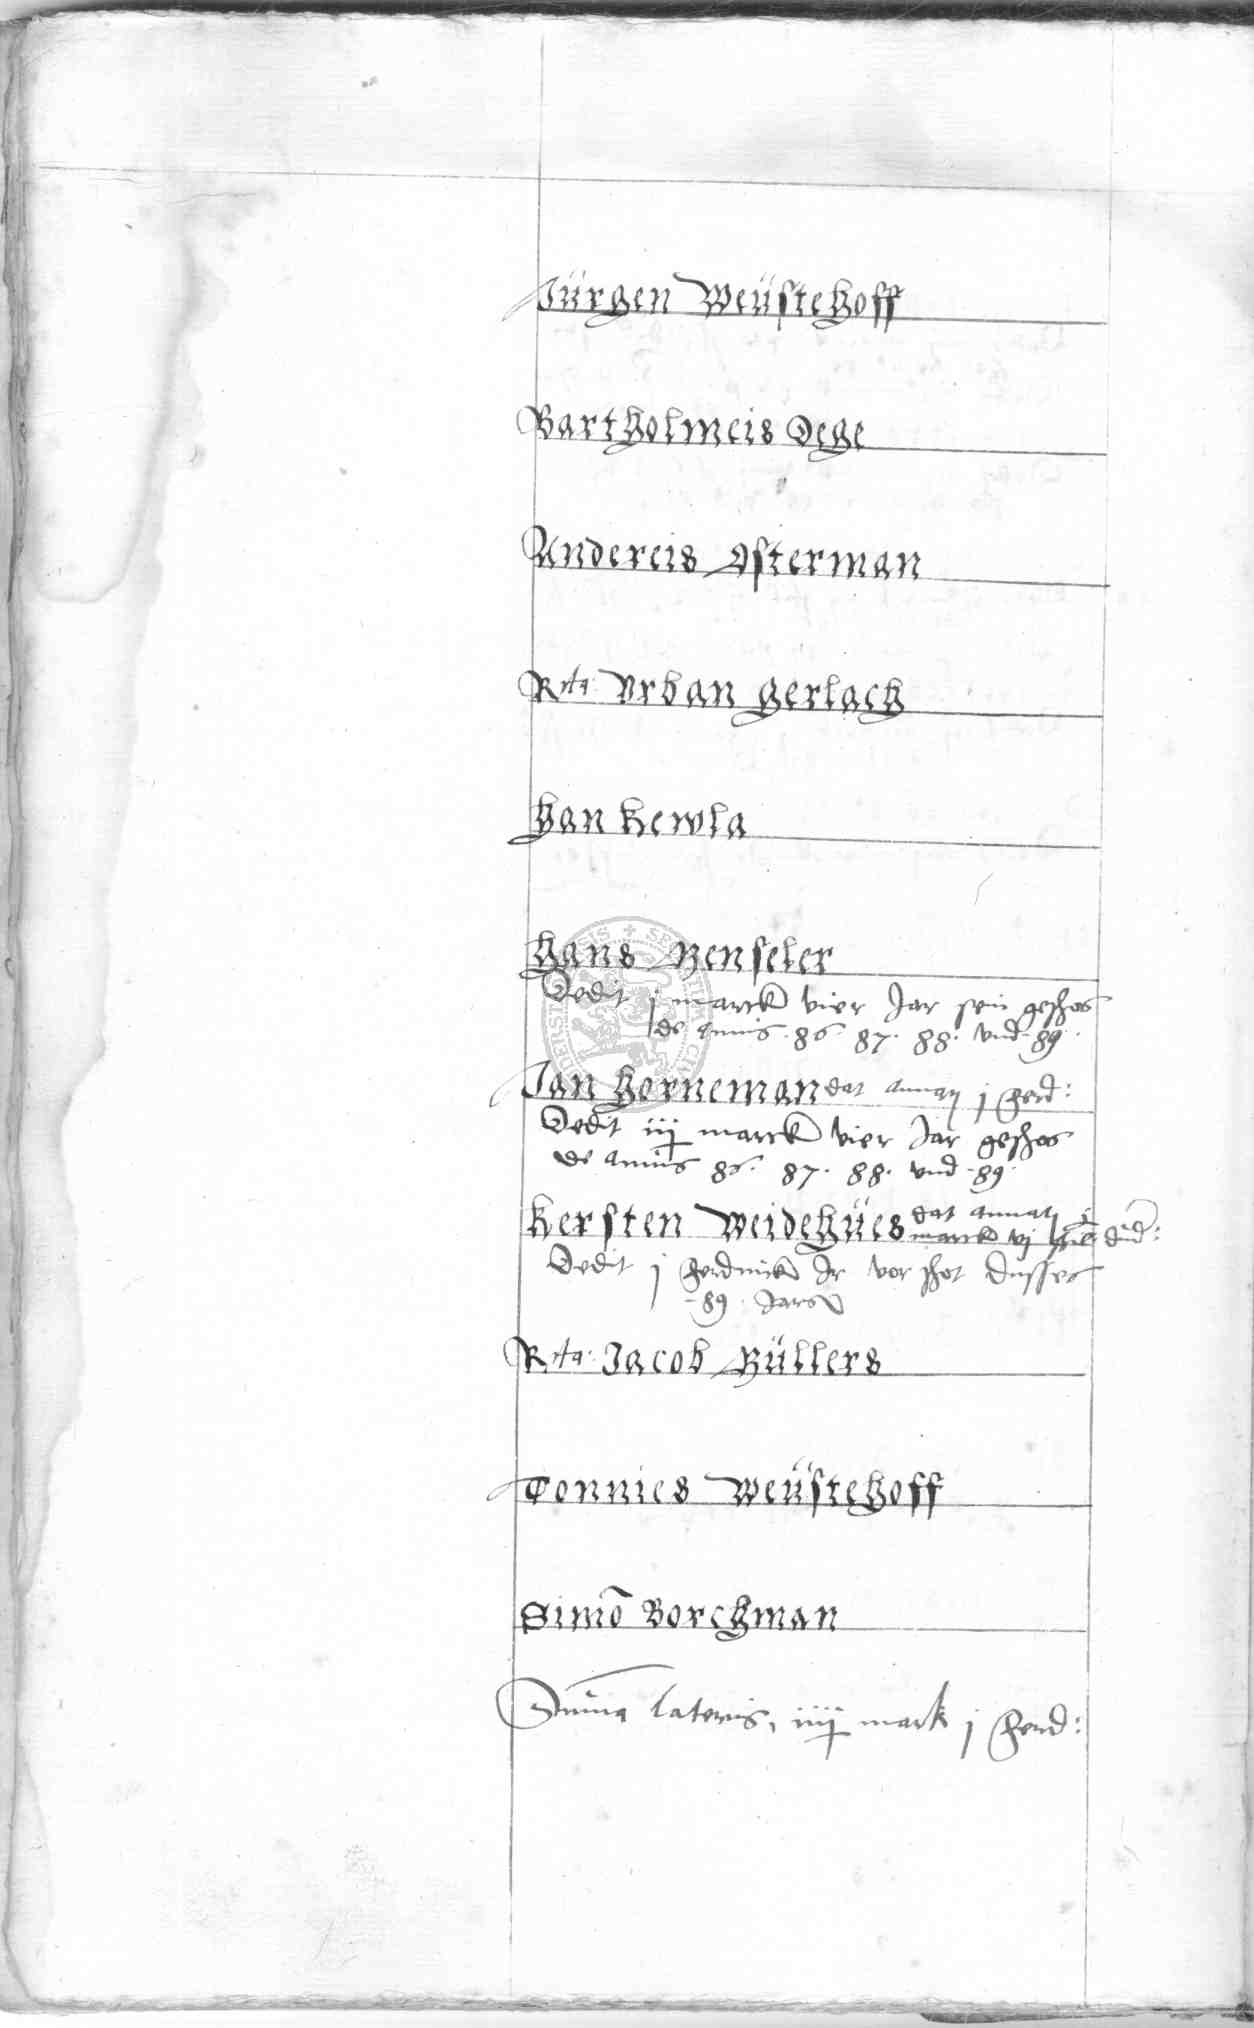 Jürgen Weüstehoff
Bartholmeis Dege
Andereis Osterman
Rcta: Vrban Gerlach
Han Kewla
Hans Benseler
Dedit j marck vier Jar sein geschos
de annis .86. 87. 88. vnd .89.
Jan Horneman dat annaj j ferd:
Dedit iij marck vier Jar geschos
de annis 86. 87. 88. vnd .89.
Kersten Weidehües dat annaj j
marck vj
Dedit j ferdinck Ir vor schot dusses
.89. Jars
Rcta: Jacob Büllers
Tonnies Weüstehoff
Simō Borchman
Summa lateris, iiij mark j ferd: